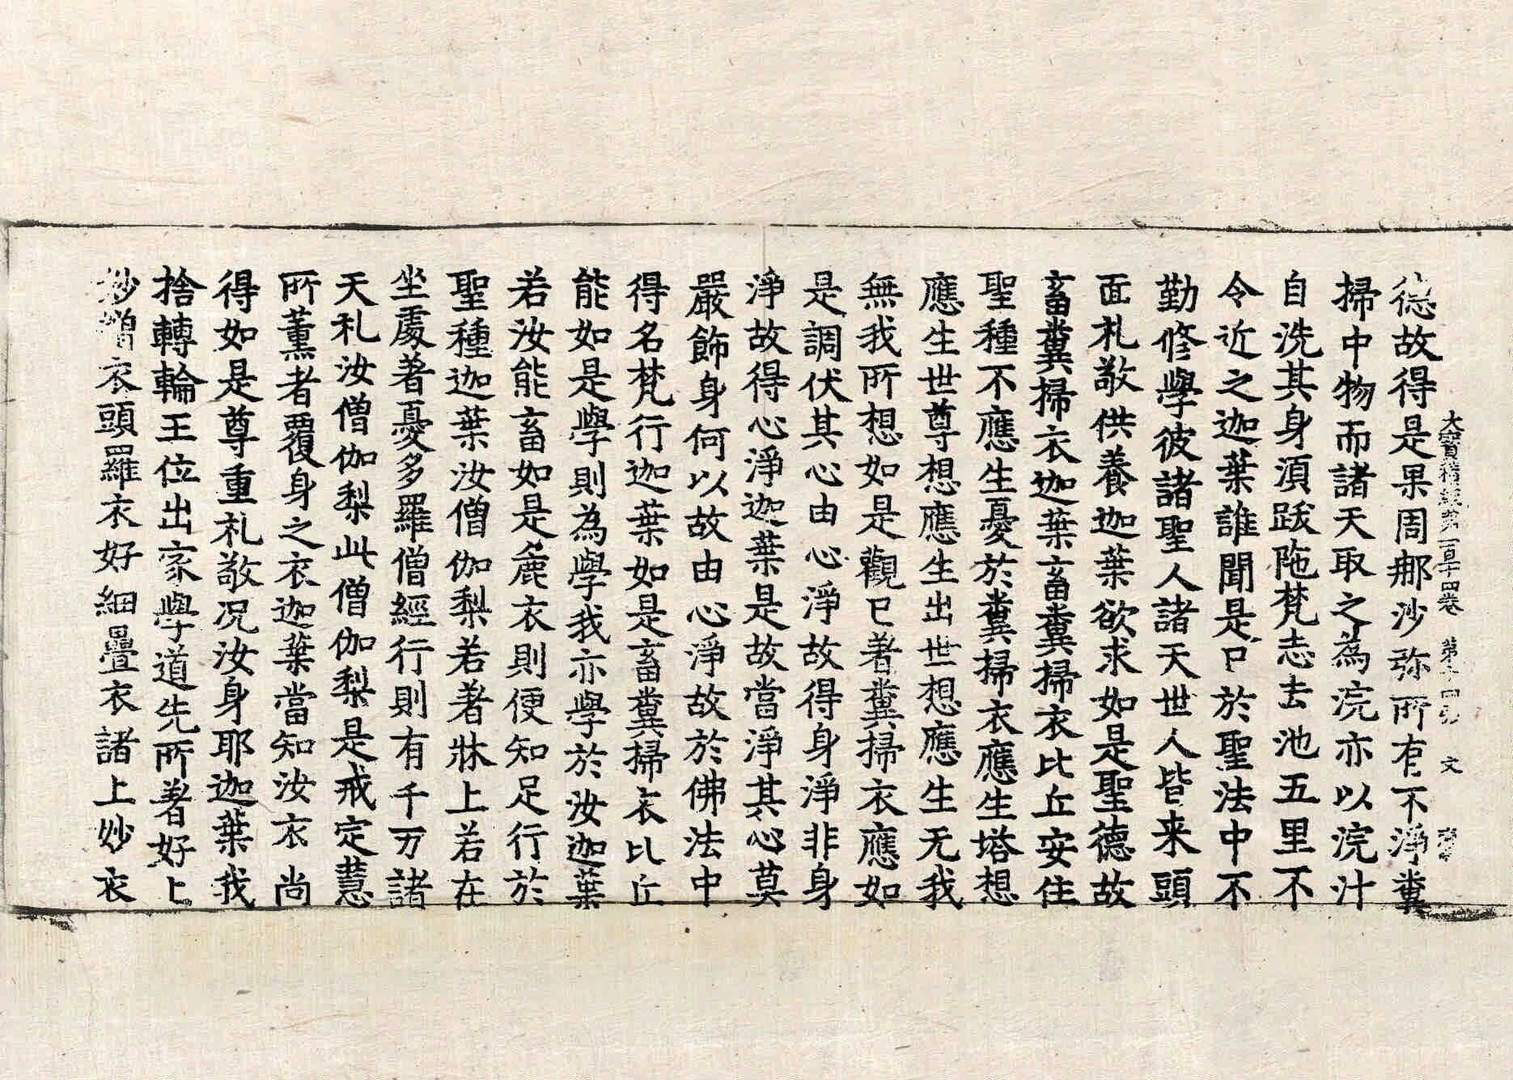 大寶積經第一百十四卷　第十四張　文
德故得是果周那沙弥所有不淨糞
掃中物而諸天取之為浣亦以浣汁
自洗其身湏跋陁梵志去池五里不
令近之迦葉誰聞是已於聖法中不
勤修學彼諸聖人諸天世人皆来頭
面礼敬供養迦葉欲求如是聖德故
畜糞掃衣迦葉畜糞掃衣比丘安住
聖種不應生憂於糞掃衣應生塔想
應生世尊想應生出世想應生无我
無我所想如是觀已著糞掃衣應如
是調伏其心由心淨故得身淨非身
淨故得心淨迦葉是故當淨其心莫
嚴飾身何以故由心淨故於佛法中
得名梵行迦葉如是畜糞掃衣比丘
能如是學則為學我亦學於汝迦葉
若汝能畜如是麁衣則便知足行於
聖種迦葉汝僧伽梨若著牀上若在
坐處著憂多羅僧經行則有千万諸
天礼汝僧伽梨此僧伽梨是戒定慧
所薰者覆身之衣迦葉當知汝衣尚
得如是尊重礼敬况汝身耶迦葉我
捨轉輪王位出家學道先所著好上
妙繒衣頭羅衣好細疊衣諸上妙衣